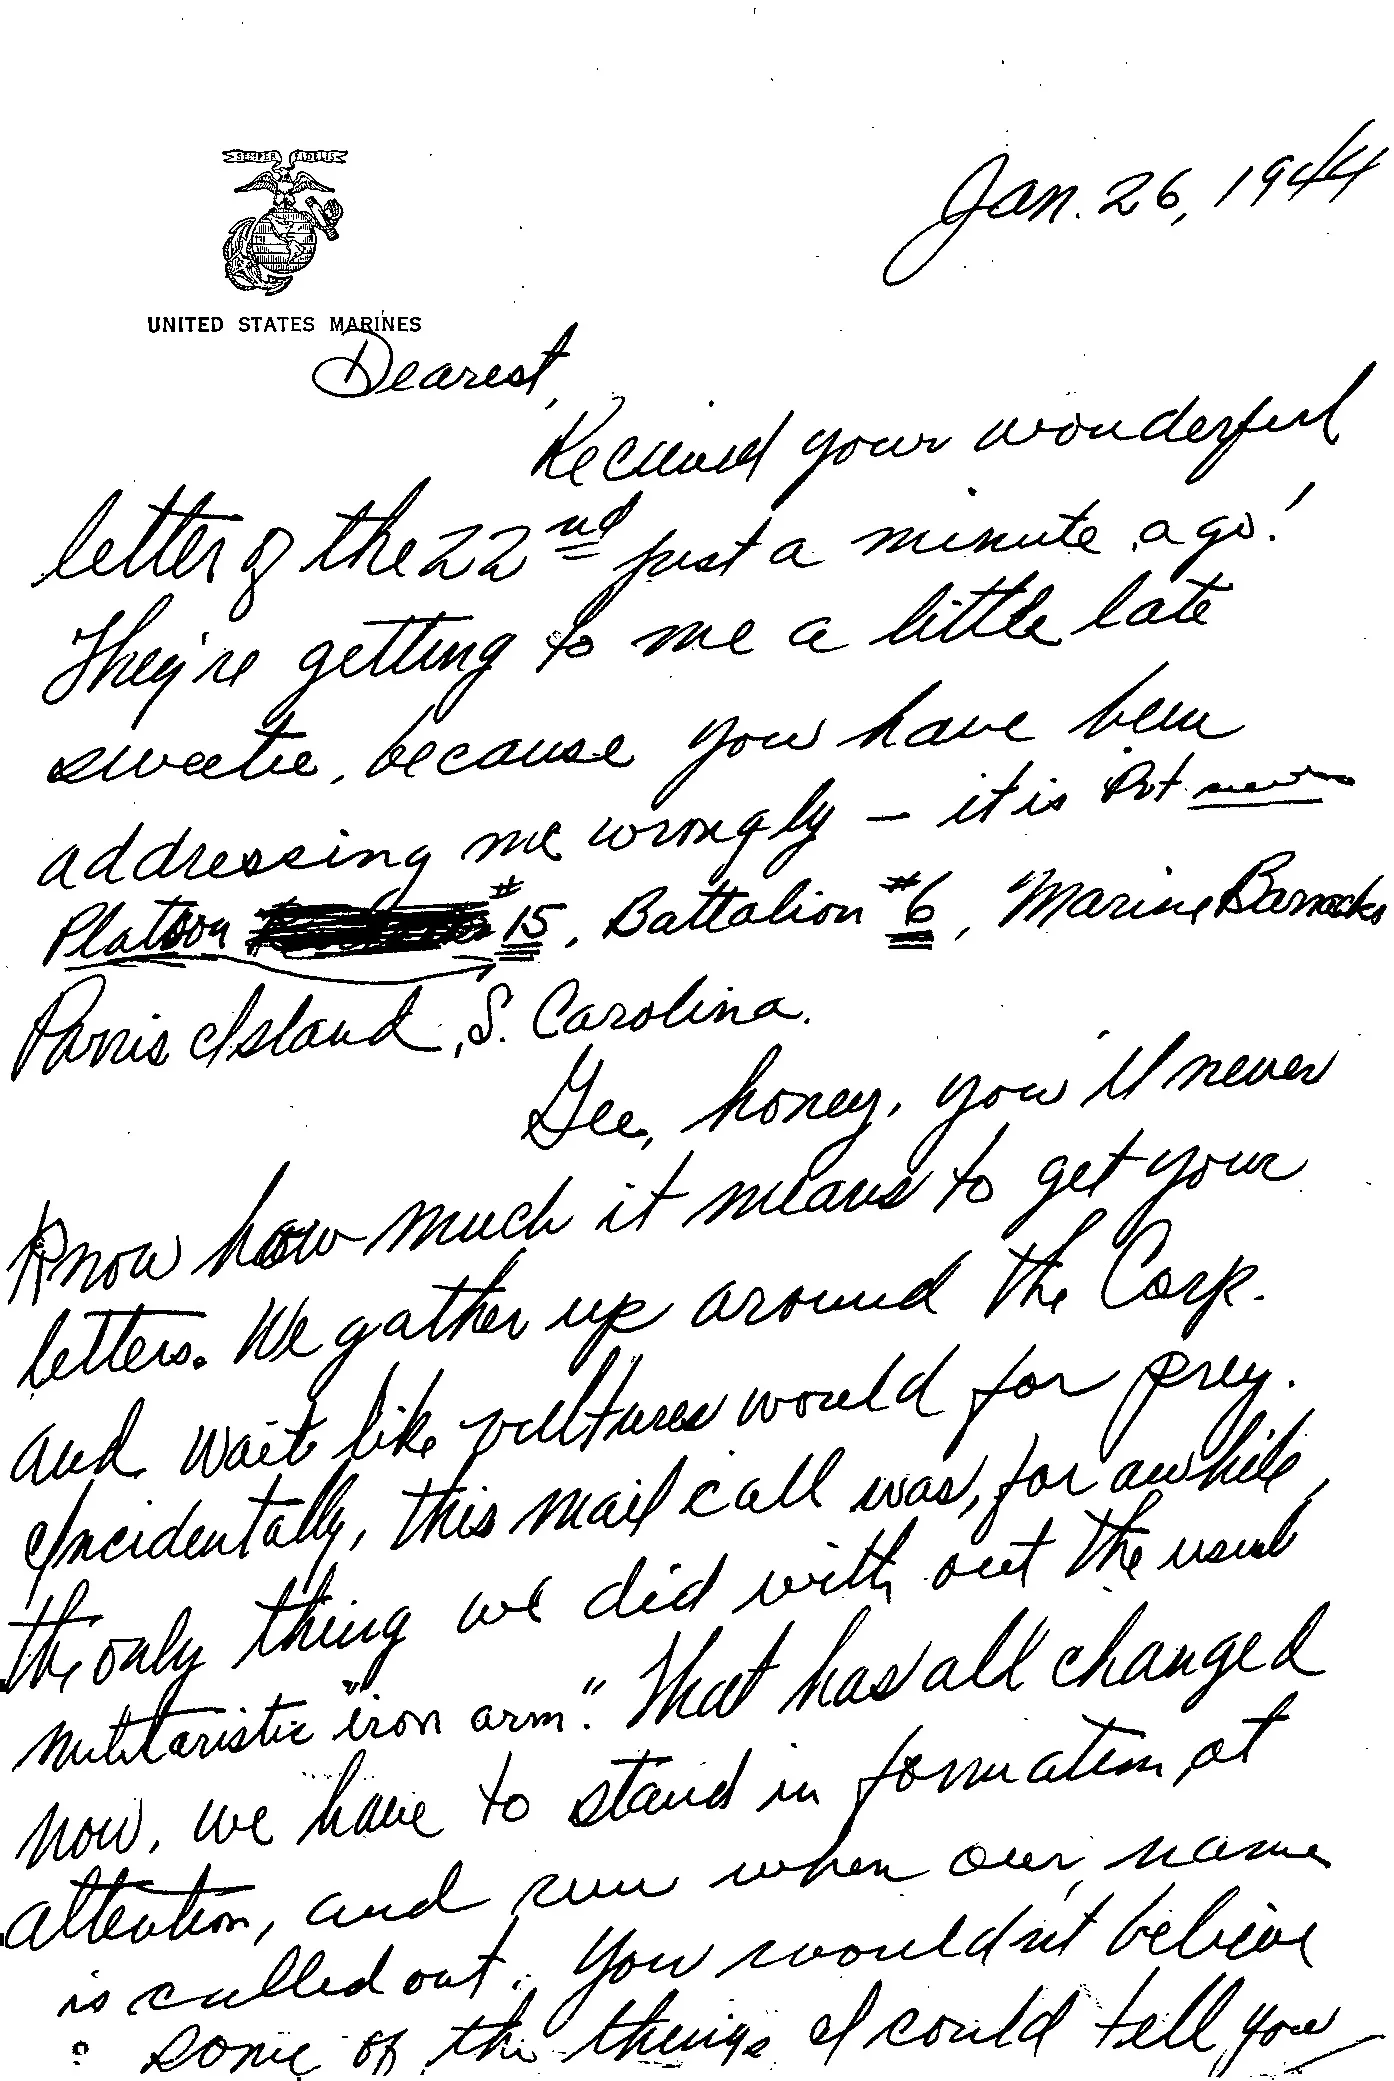 SEMPER FIDELIS
Jan. 26, 1944
UNITED STATES MARINES
Dearest,
Recieved your wonderful
letter of the 22nd just a minute ago!
They're getting to me a little late
sweetie, because you have been
addressing me wrongly – it is Pvt
Platoon #15, Battalion #6, Marine Barracks
Parris Island, S. Carolina.
Gee, honey, you'll never
know how much it means to get your
letters. We gather up around the Corp.
and wait like vultures would for prey.
Incidentally, this mail call was, for awhile,
the only thing we did with out the usual
militaristic "iron arm." That has all changed
now, we have to stand in formation, at
attention, and run when our name
is called out. You wouldn't believe
some of the things I could tell you